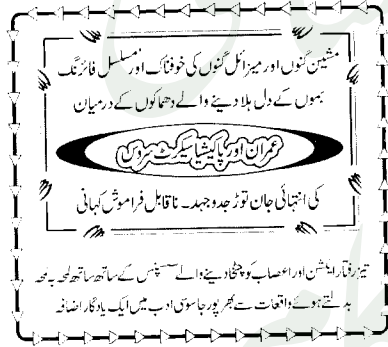 مشین گنوں اور میزائل گنوں کی خوفناک اور مسلسل فائرنگ
بموں کے دل ہلا دینے والے دھماکوں کے درمیان
عمران اور پاکیشیا سیکرٹ سروس
کی انتہائی جان توڑ جدوجہد۔ ناقابل فراموش کہانی
تیز رفتار ایکشن اور اعصاب کو چٹخا دینے والے سسپنس کے ساتھ ساتھ لمحہ بہ لمحہ
بدلتے ہوئے واقعات سے بھرپور جاسوسی ادب میں ایک یادگار اضافہ